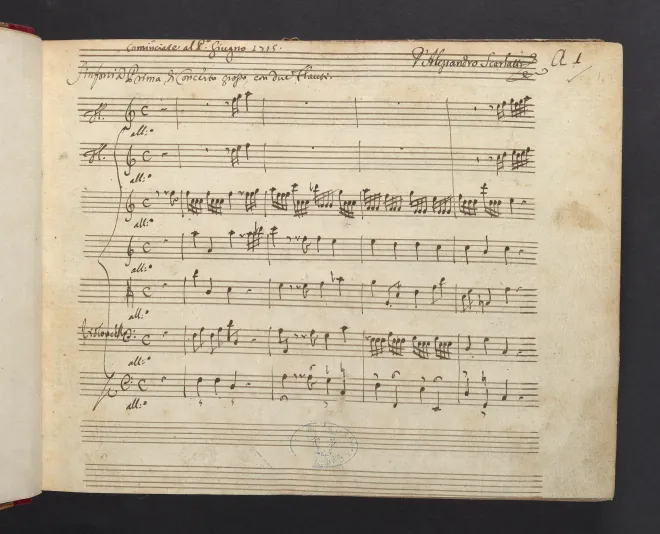 Cominciate al P.º Giugno 1715.
D'Alessandro Scarlatti
A 1
Sinfonia Prima di Concerto grosso con due Flauti.
fl.
all:º
fl.
all:º
all:º
all:º
all:º
Violoncello
all:º
all:º